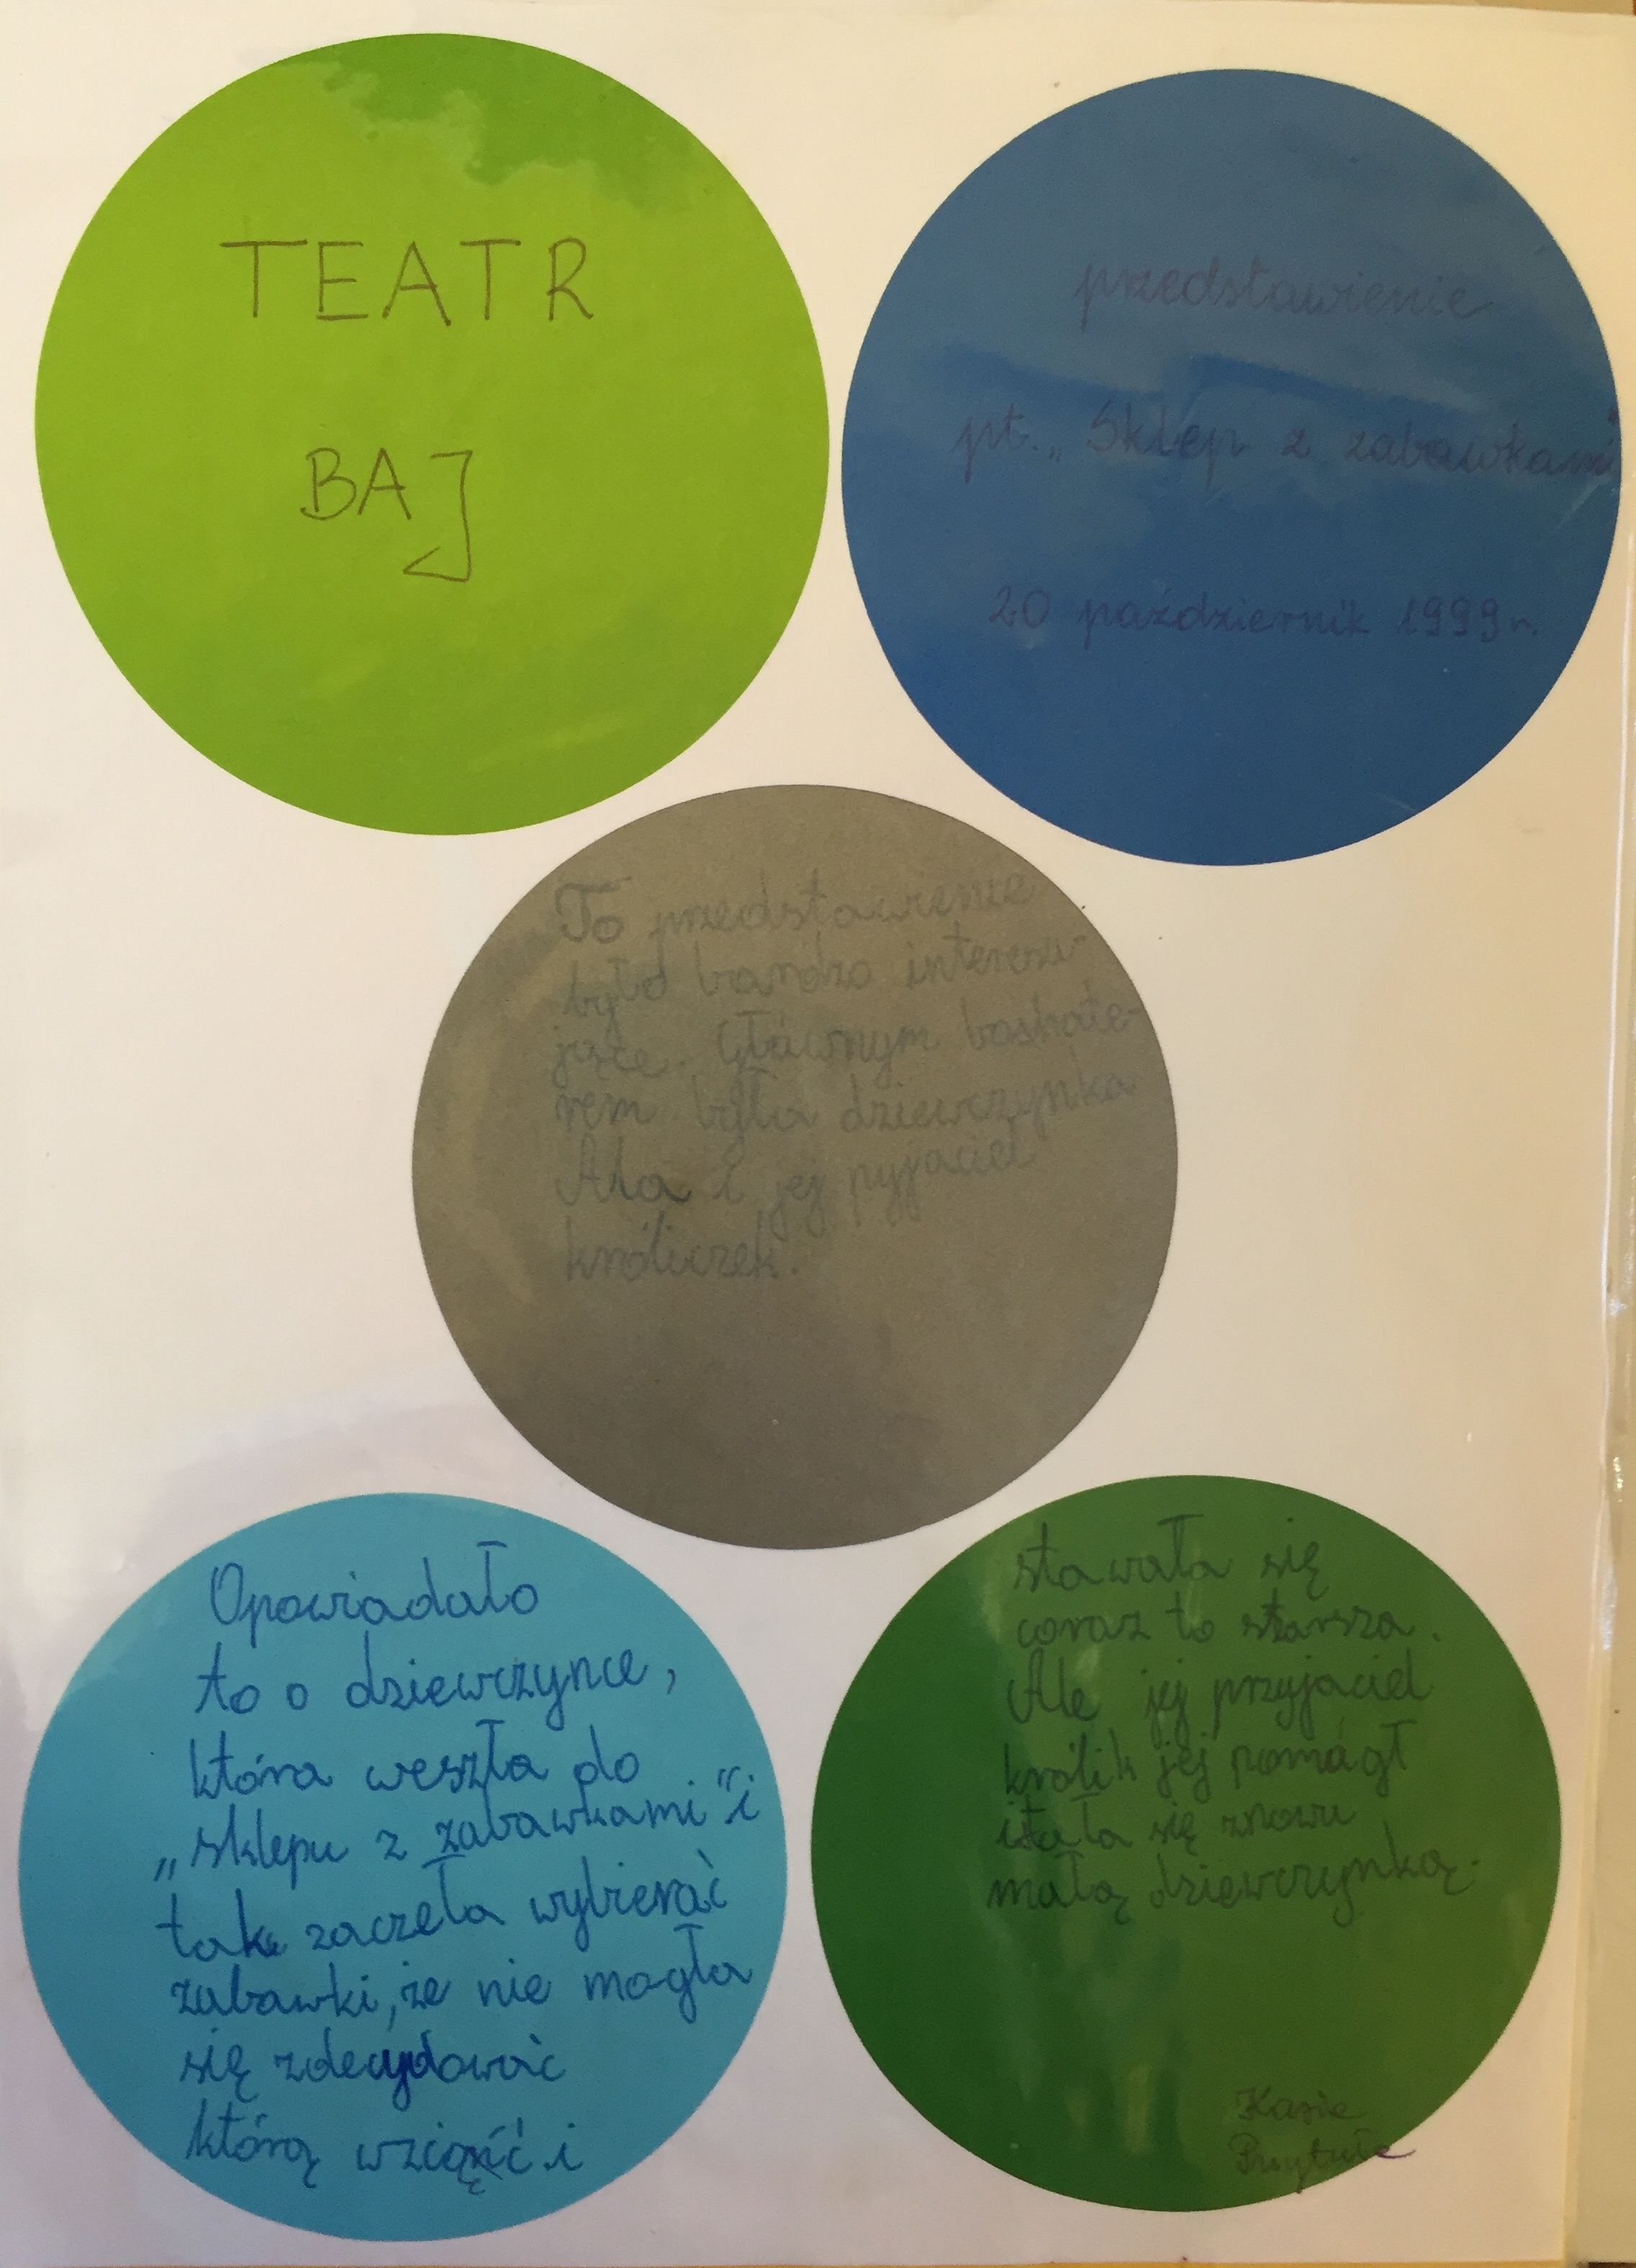 TEATR
BAJ
przedstawienie
pt. „Sklep z zabawkami"
20 październik 1999 r.
To przedstawienie
było bardzo interesu-
jące. Głównym bochate-
rem była dziewczynka
Ala i jej pyjaciel
króliczek.
Opowiadało
to o dziewczynce,
która weszła do
„sklepu z zabawkami" i
tak zaczeła wybierać
zabawki, że nie mogła
się zdecydować
którą wziąść i
stawała się
coraz to starsza.
Ale jej przyjaciel
królik jej pomógł
i stała się znowu
małą dziewczynką.
Kasia